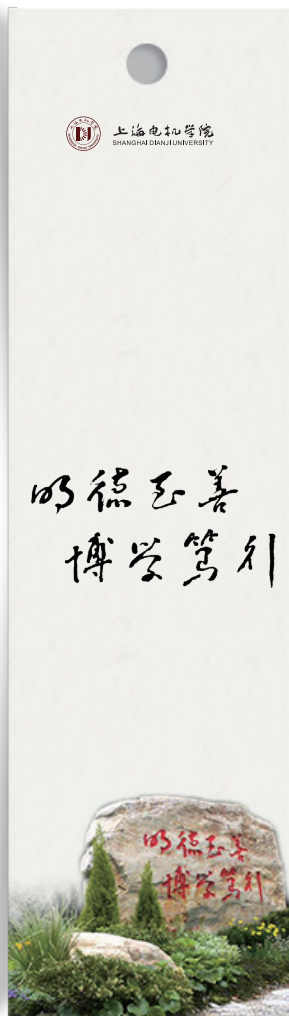 上海电机学院
SHANGHAI DIANJI UNIVERSITY
明德至善
博学笃行
明德至善
博学笃行